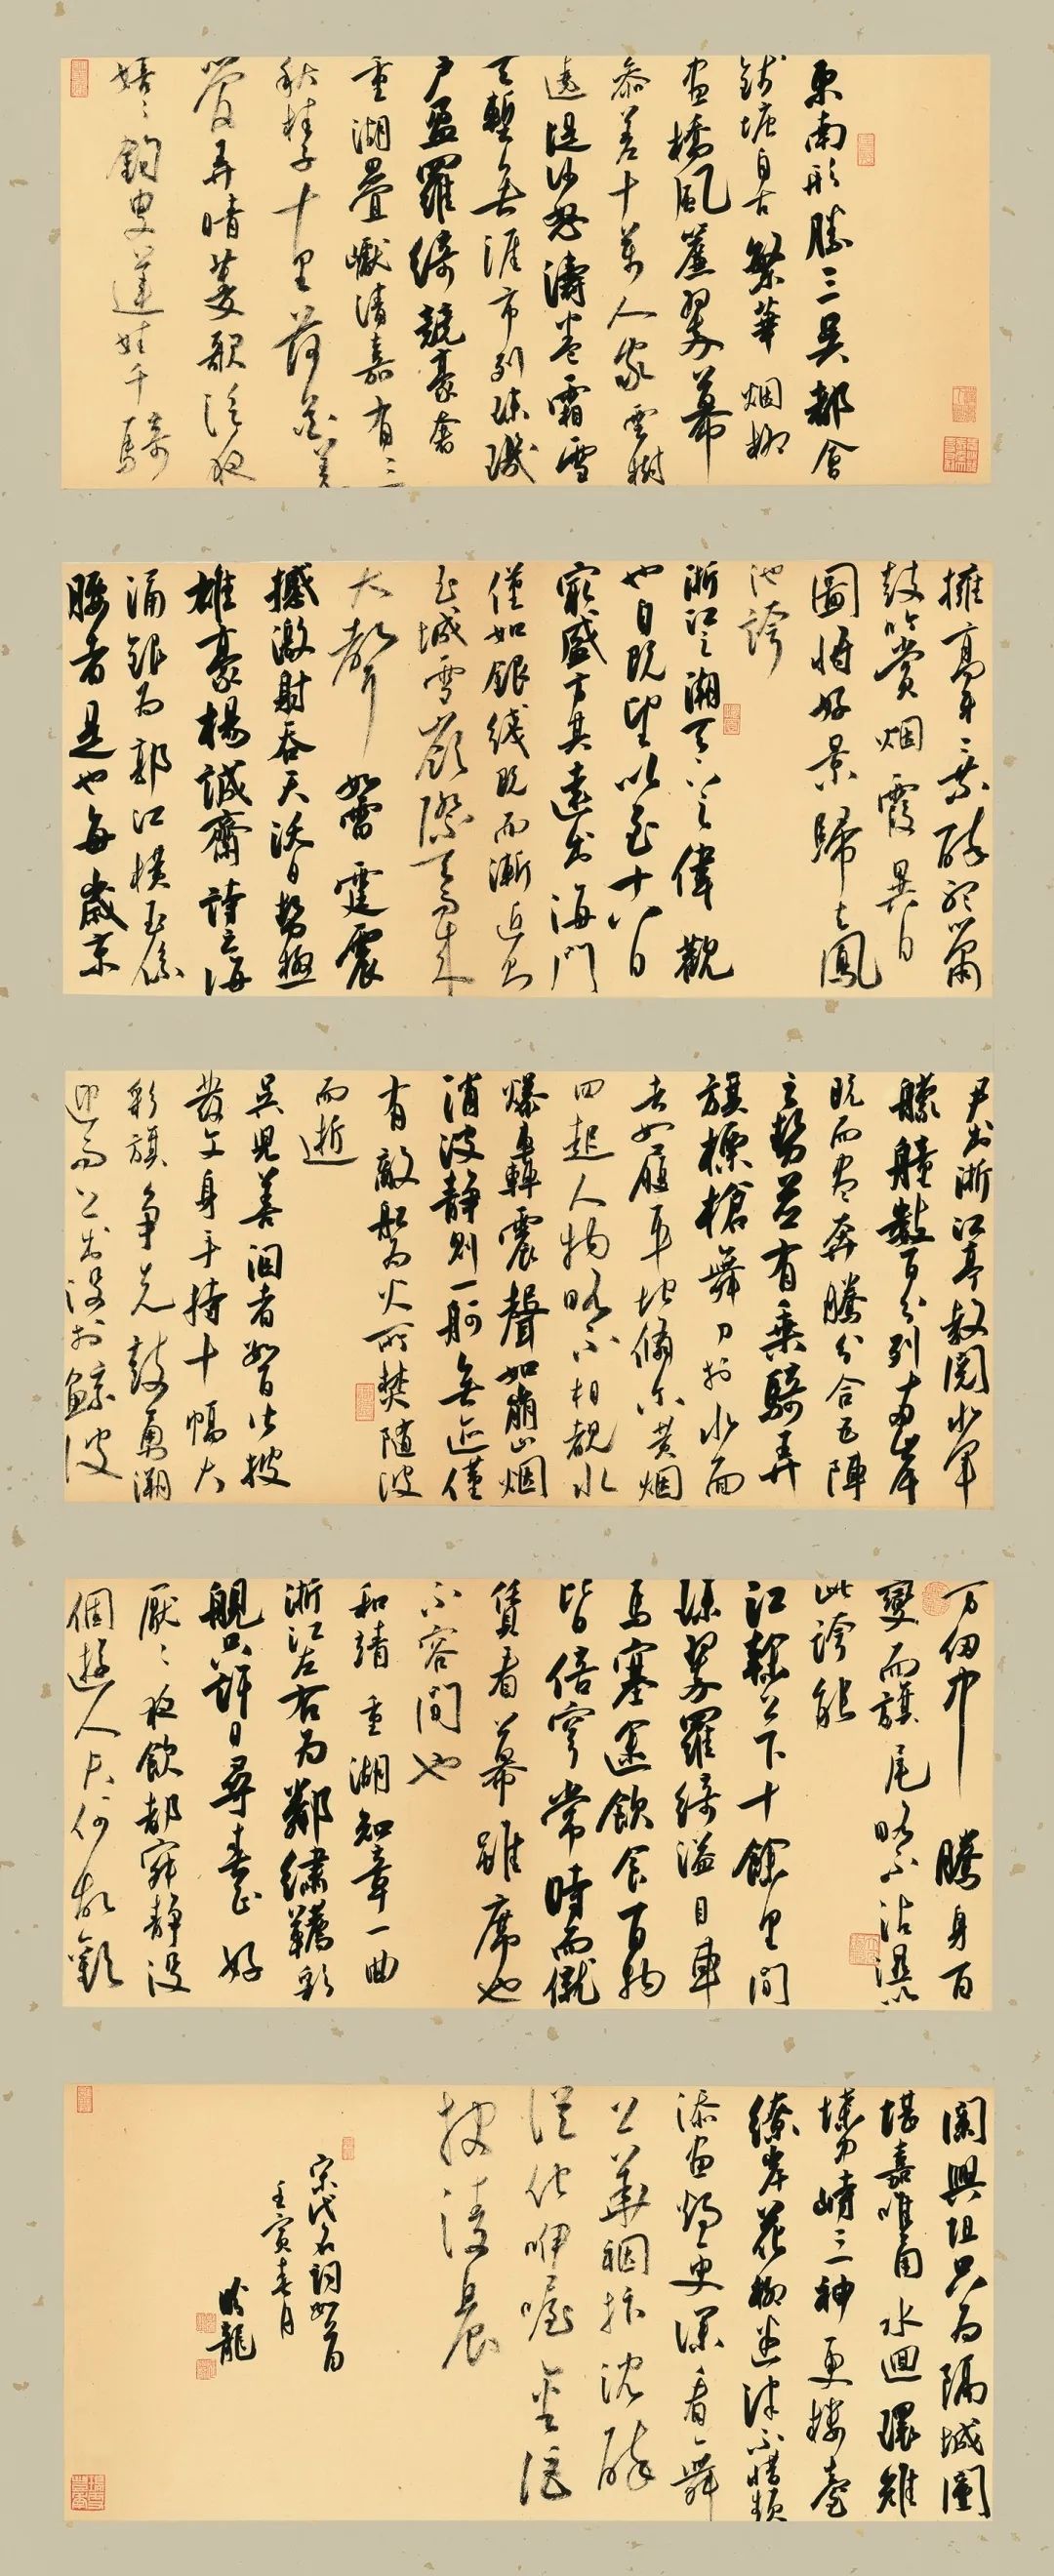 東南形勝三吳都會
錢塘自古繁華烟柳
畫橋風簾翠幕
參差十萬人家雲樹
遶堤沙怒濤卷霜雪
天塹無涯市列珠璣
户盈羅綺競豪奢
重湖疊巘清嘉有三
秋桂子十里荷花羌
管弄晴菱歌泛夜
嬉〻釣叟蓮娃千騎
擁高牙乘醉聽簫
鼓吟賞烟霞異日
圖將好景歸去鳳
池誇
浙江之潮天下之偉觀
也自既望以至十八日
最盛方其遠出海門
僅如銀綫既而漸近則
玉城雪嶺際天而來
大聲如雷霆震
撼激射吞天沃日勢極
雄豪楊誠齋詩云海
涌銀為郭江橫玉係
腰者是也每歲京
尹出浙江亭教閱水軍
艨艟數百分列兩岸
既而盡奔騰分合五陣
之勢並有乘騎弄
旗標槍舞刀於水面
者如履平地倏尔黄烟
四起人物略不相覩水
爆轟震聲如崩山烟
消波靜則一舸無迹僅
有敵船為火所焚隨波
而逝
吳兒善泅者數百皆披
髮文身手持十幅大
彩旗爭先鼓勇溯
迎而上出没於鯨波
万仞中騰身百
變而旗尾略不沾濕以
此誇能
江幹上下十餘里間
珠翠羅綺溢目車
馬塞途飲食百物
皆倍穹常時而僦
賃看幕雖席地
不容間也
和靖重湖知章一曲
浙江左右為鄰繡韉彩
舰只許日尋春正好
厭〻夜飲都寂靜没
個遊人只何故歡
闌興阻只為隔城闉
堪嘉唯甬水迴環雉
堞對峙三神更樓臺
繚岸花柳迷津不惜頻
添畫燭更深看舞
上華裀拚沈醉
從他咿喔金距
報凌晨
宋代名詞數首
壬寅春月
龍